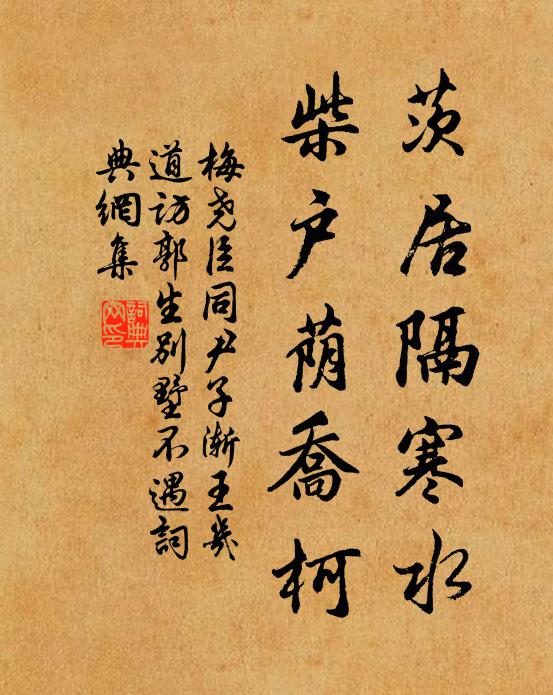 茨居隔寒水
柴户荫喬柯
梅尧臣同尹子渐王幾
道访郭生别墅不遇詞
典網集
詞典
网印